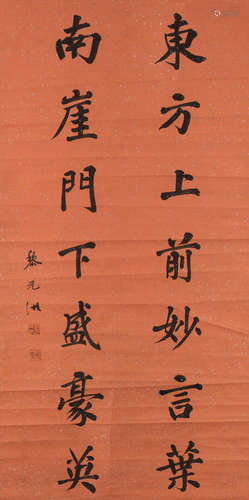 東方上前妙言葉
南崖門下盛豪英
黎元洪